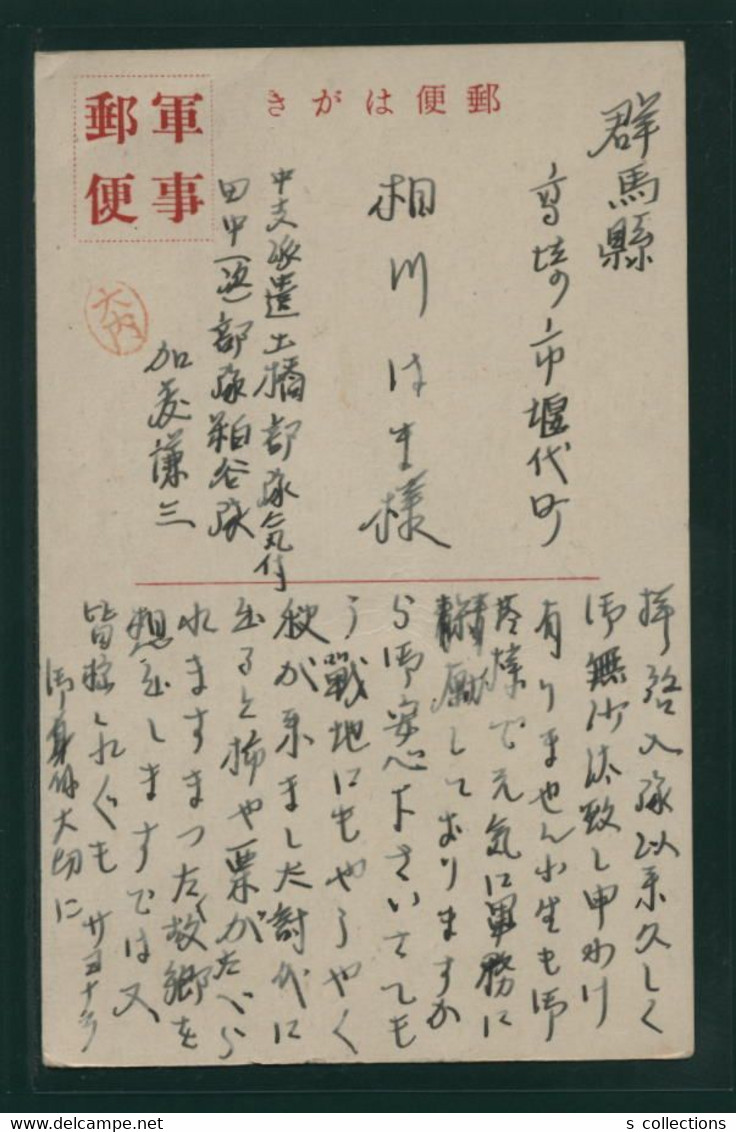 郵便はがき
軍事
郵便
群馬縣
高崎市堰代町
相川はま様
中支派遣土橋部隊気付
田中(逸)部隊粕谷隊
加菱謙三
大内
拝啓入隊以来久しく
御無沙汰致し申わけ
有りません小生も御
蔭様で元気に軍務に
精励しておりますか
ら御安心下さいさても
う戦地にもやうやく
秋が来ました討伐に
出ると柿や栗がたべら
れますまつたく故郷を
想出しますでは又
皆様くれぐも
御身体大切に
サヨナラ
s collections